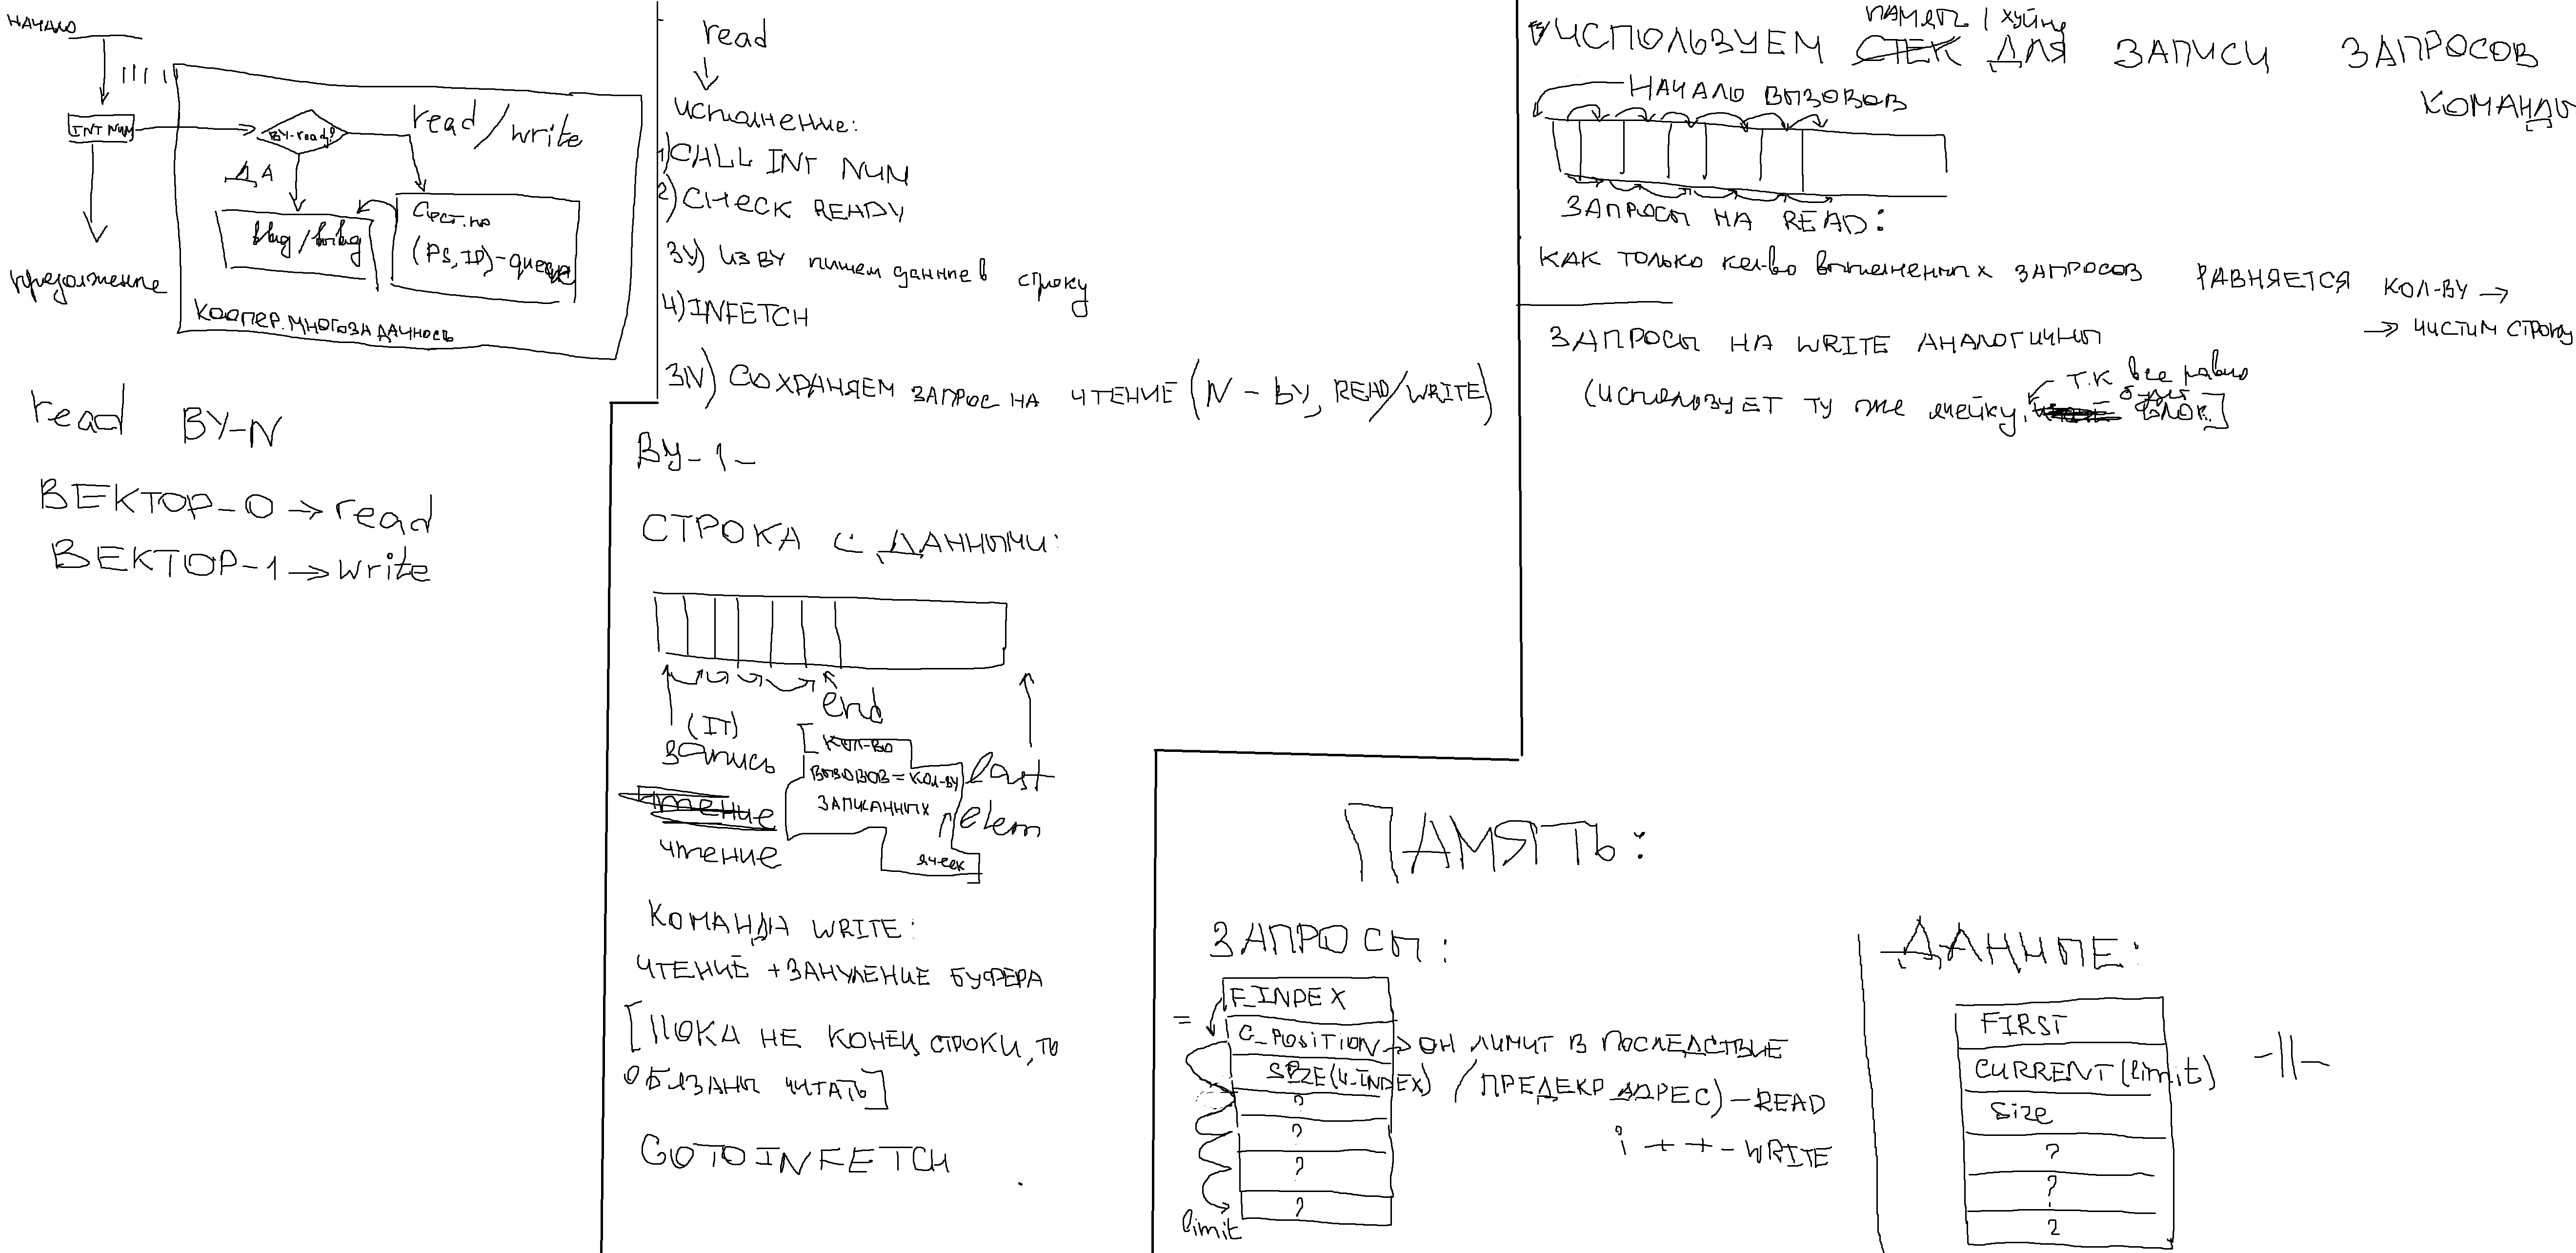 НАЧАЛО
INT NUM
ВУ-read?
read/write
ДА
(PS, IP)-queue
КООПЕР. МНОГОЗАДАЧНОСЬ
продолжение
read ВУ-N
ВЕКТОР-0 → read
ВЕКТОР-1 → write
read
исполнение:
1) CALL INT NUM
2) CHECK READY
3У) ИЗ ВУ пишем данные в строку
4) INFETCH
3N) СОХРАНЯЕМ ЗАПРОС НА ЧТЕНИЕ (N - ВУ, READ/WRITE)
ВУ-1-
СТРОКА С ДАННЫМИ:
end
(IT)
запись
чтение
чтение
[КОЛ-ВО
ВЫЗОВОВ = КОЛ-ВУ
ЗАПИСАННЫХ
ячеек]
last
elem
КОМАНДА WRITE:
ЧТЕНИЕ + ЗАНУЛЕНИЕ БУФЕРА
[ПОКА НЕ КОНЕЦ СТРОКИ, ТО
ОБЯЗАНЫ ЧИТАТЬ]
GOTO INFETCH
ПАМЯТЬ / хуйню
ИСПОЛЬЗУЕМ СТЕК ДЛЯ ЗАПИСИ ЗАПРОСОВ
КОМАНДЫ
НАЧАЛО ВЫЗОВОВ
ЗАПРОСЫ НА READ:
КАК ТОЛЬКО кол-во выполненных ЗАПРОСОВ РАВНЯЕТСЯ КОЛ-ВУ →
→ ЧИСТИМ СТРОКУ
ЗАПРОСЫ НА WRITE АНАЛОГИЧНЫ
Т.К все равно
один
(использует ту же ячейку, БЛОК]
ПАМЯТЬ:
ЗАПРОСЫ:
F_INDEX
C_POSITION → ОН ЛИМИТ В ПОСЛЕДСТВИЕ
SIZE(4-INDEX) / ПРЕДЕКР АДРЕС) - READ
i++ - WRITE
?
?
?
?
limit
ДАННЫЕ:
FIRST
CURRENT (limit)
-||-
Size
?
?
?